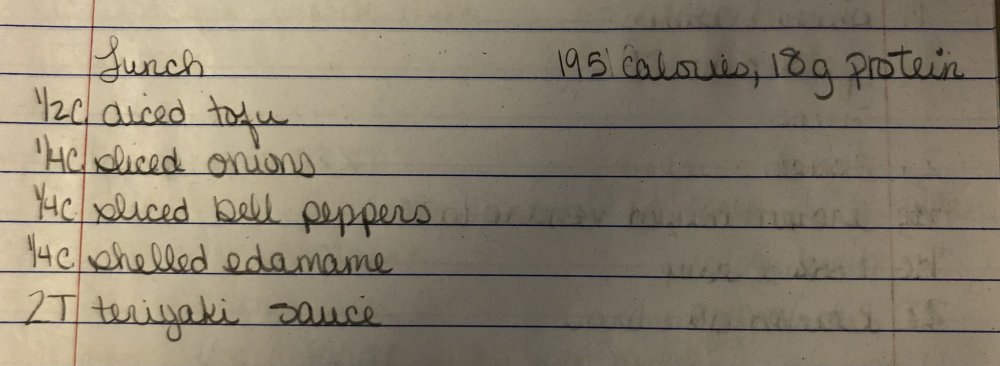 Lunch 195 calories, 18g protein
1/2C diced tofu
1/4C sliced onions
1/4C sliced bell peppers
1/4C shelled edamame
2T teriyaki sauce